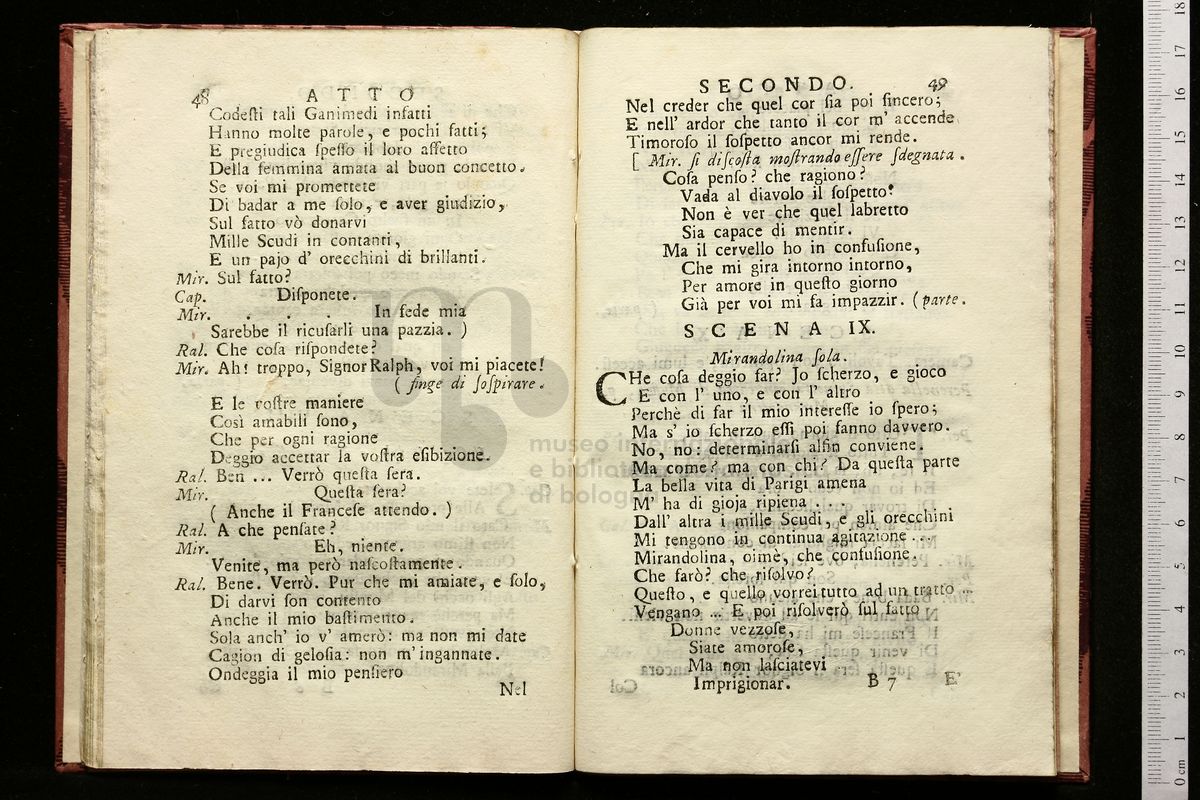 48 ATTO
Codeſti tali Ganimedi infatti
Hanno molte parole, e pochi fatti;
E pregiudica ſpeſſo il loro affetto
Della femmina amata al buon concetto.
Se voi mi promettete
Di badar a me ſolo, e aver giudizio,
Sul fatto vò donarvi
Mille Scudi in contanti,
E un pajo d' orecchini di brillanti.
Mir. Sul fatto?
Cap. Diſponete.
Mir. . . . In fede mia
Sarebbe il ricuſarli una pazzia. )
Ral. Che coſa riſpondete?
Mir. Ah! troppo, Signor Ralph, voi mi piacete!
( finge di ſoſpirare.
E le voſtre maniere
Così amabili ſono,
Che per ogni ragione
Deggio accettar la voſtra eſibizione.
Ral. Ben ... Verrò queſta ſera.
Mir. Queſta ſera?
( Anche il Franceſe attendo. )
Ral. A che penſate?
Mir. Eh, niente.
Venite, ma però naſcoſtamente.
Ral. Bene. Verrò. Pur che mi amiate, e ſolo,
Di darvi ſon contento
Anche il mio baſtimento.
Sola anch' io v' amerò: ma non mi date
Cagion di geloſia: non m' ingannate.
Ondeggia il mio penſiero
Nel
SECONDO. 49
Nel creder che quel cor ſia poi ſincero;
E nell' ardor che tanto il cor m' accende
Timoroſo il ſoſpetto ancor mi rende.
[ Mir. ſi diſcoſta moſtrando eſſere ſdegnata.
Coſa penſo? che ragiono?
Vada al diavolo il ſoſpetto!
Non è ver che quel labretto
Sia capace di mentir.
Ma il cervello ho in confuſione,
Che mi gira intorno intorno,
Per amore in queſto giorno
Già per voi mi fa impazzir. ( parte.
SCENA IX.
Mirandolina ſola.
CHe coſa deggio far? Jo ſcherzo, e gioco
E con l' uno, e con l' altro
Perchè di far il mio intereſſe io ſpero;
Ma s' io ſcherzo eſſi poi fanno davvero.
No, no: determinarſi alfin conviene.
Ma come? ma con chi? Da queſta parte
La bella vita di Parigi amena
M' ha di gioja ripiena . .
Dall' altra i mille Scudi, e gli orecchini
Mi tengono in continua agitazione ...
Mirandolina, oimè, che confuſione.
Che farò? che riſolvo?
Queſto, e quello vorrei tutto ad un tratto ...
Vengano ... E poi riſolverò ſul fatto
Donne vezzoſe,
Siate amoroſe,
Ma non laſciatevi
Imprigionar. B 7 E'
museo internazionale
e bibliote
di bolog